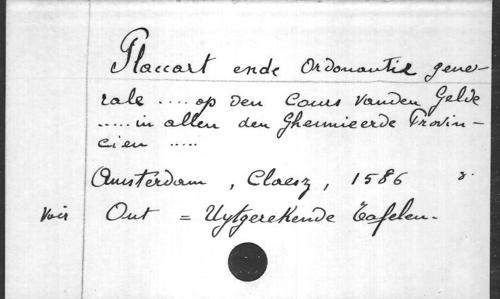 Placcart ende Ordonantie gene-
rale .... op den Cours vanden Gelde
..... in allen den Ghemieerde Provin-
cien .....
Amsterdam , Claesz , 1586 8.
Voir Out = Uytgerekende Tafelen.